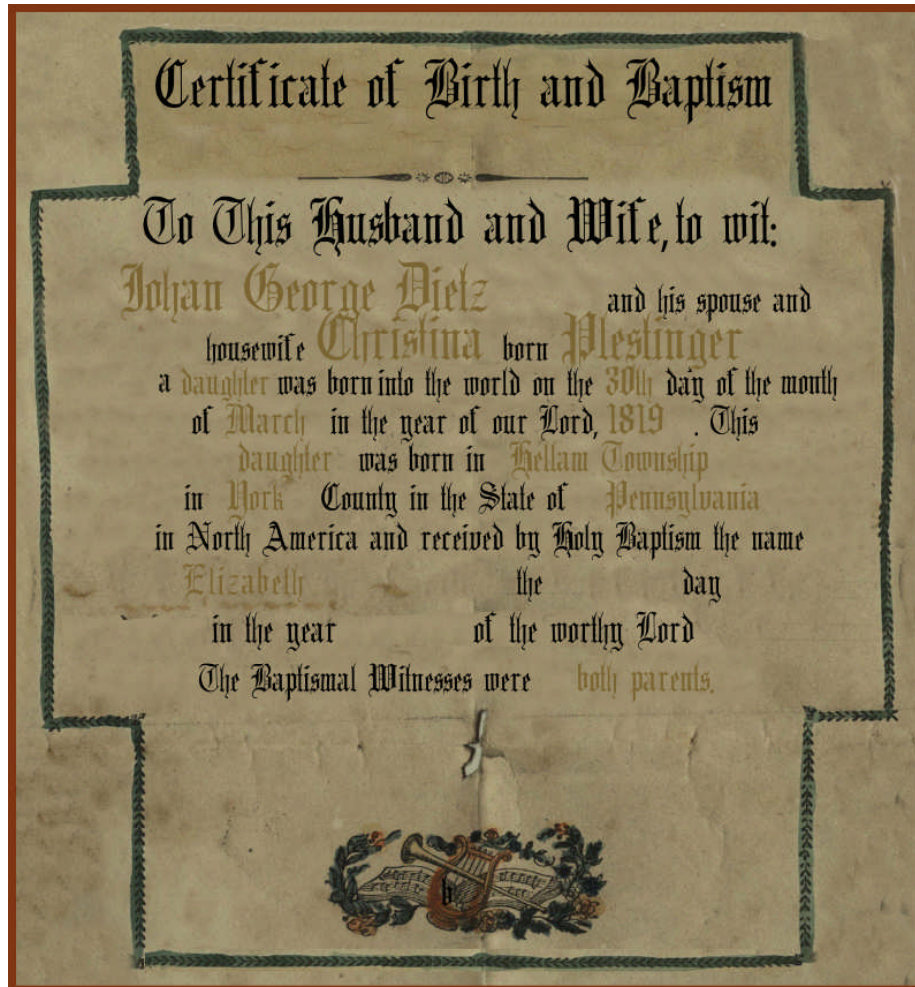 Certificate of Birth and Baptism
To This Husband and Wife, to wit:
Johan George Dietz and his spouse and
housewife Christina born Plestinger
a daughter was born into the world on the 30th day of the month
of March in the year of our Lord, 1819 . This
daughter was born in Hellam Township
in York County in the State of Pennsylvania
in North America and received by Holy Baptism the name
Elizabeth the day
in the year of the worthy Lord
The Baptismal Witnesses were both parents.